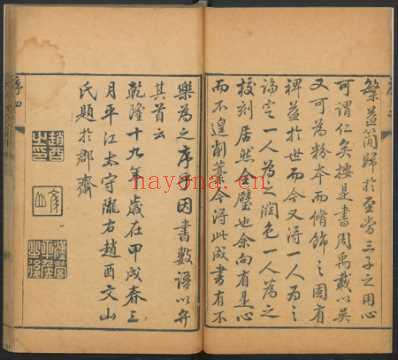 繁益簡歸於至當三子之用心
可謂仁矣是書周禹載以
又可為粉本而脩飾之固有
裨益於世而今又得一人為之
論定一人為之潤色一人為之
校刻居然合璧也余向有是心
而不遑削藁今得此成書有不
樂為之序乎因書數語以弁
其首云
乾隆十九年歲在甲戌春三
月平江太守隴右趙酉文山
氏題於郡齋
序四
hayona.cn